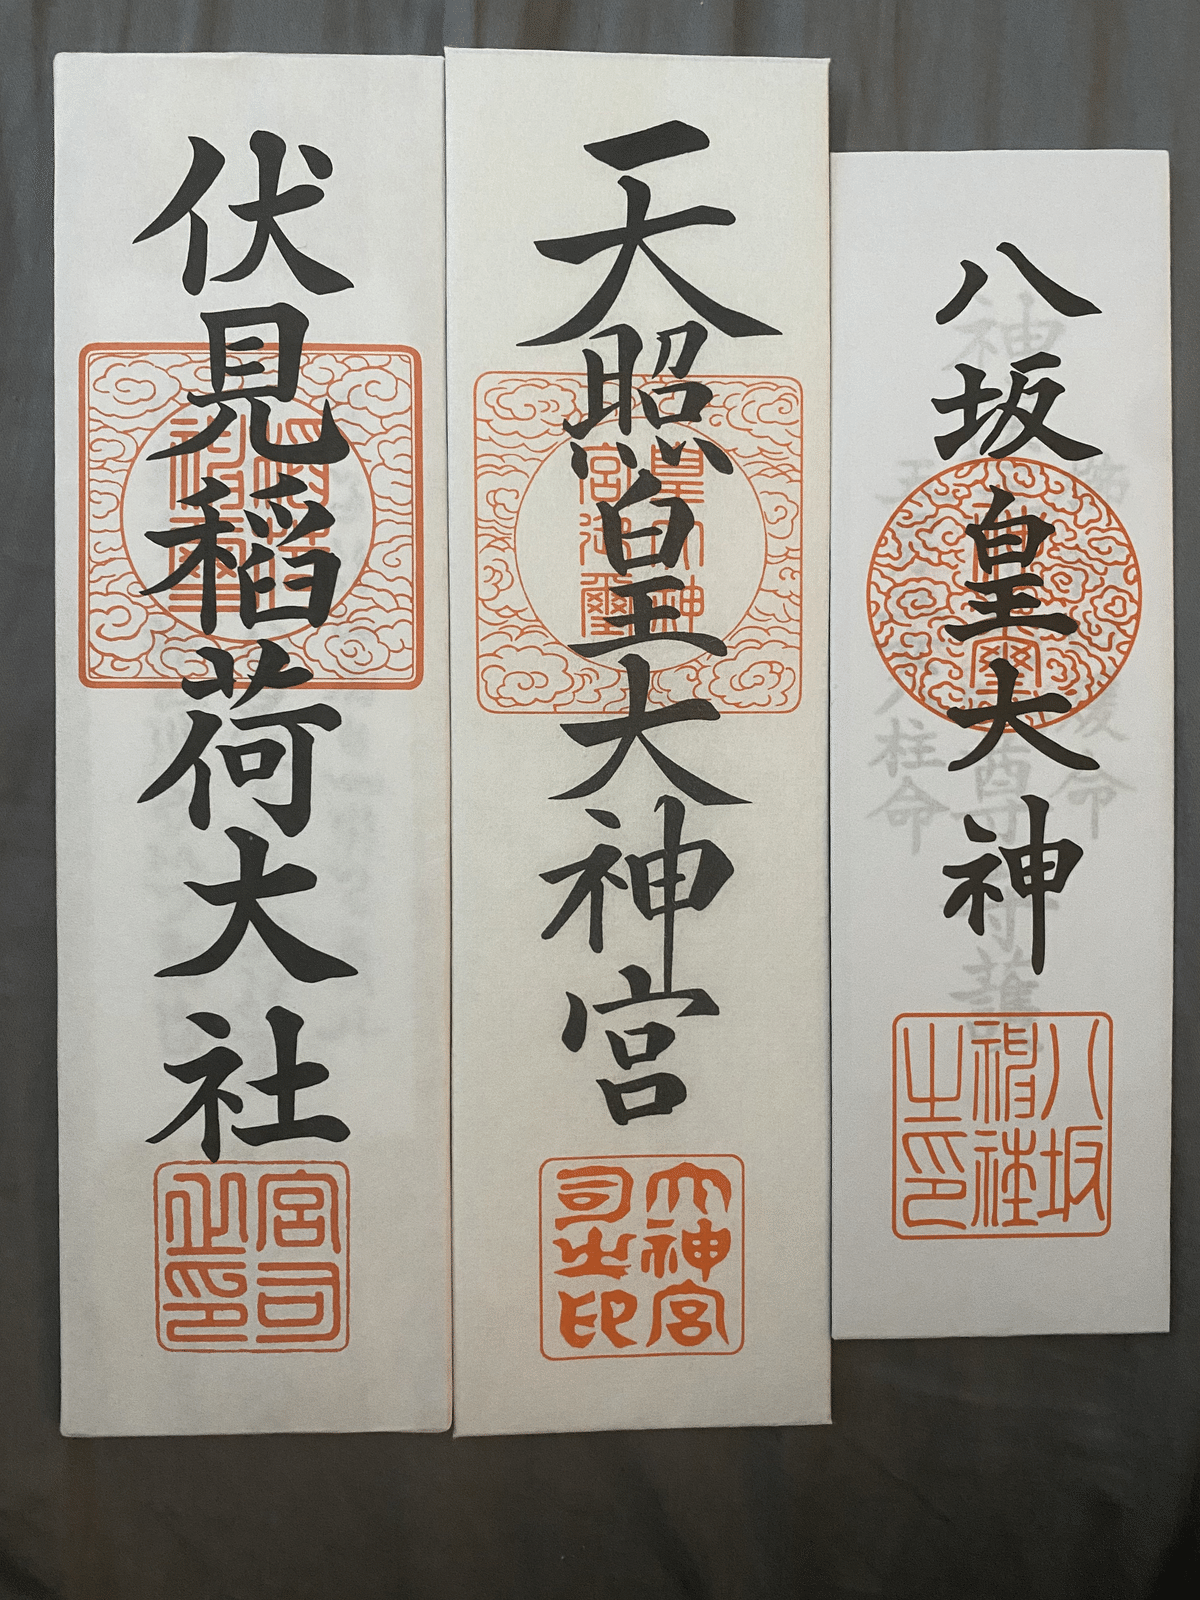 伏見稲荷大社
宮司
之印
天照皇大神宮
皇大神
宮御璽
大神宮
司之印
八坂皇大神
八坂
神社
之印